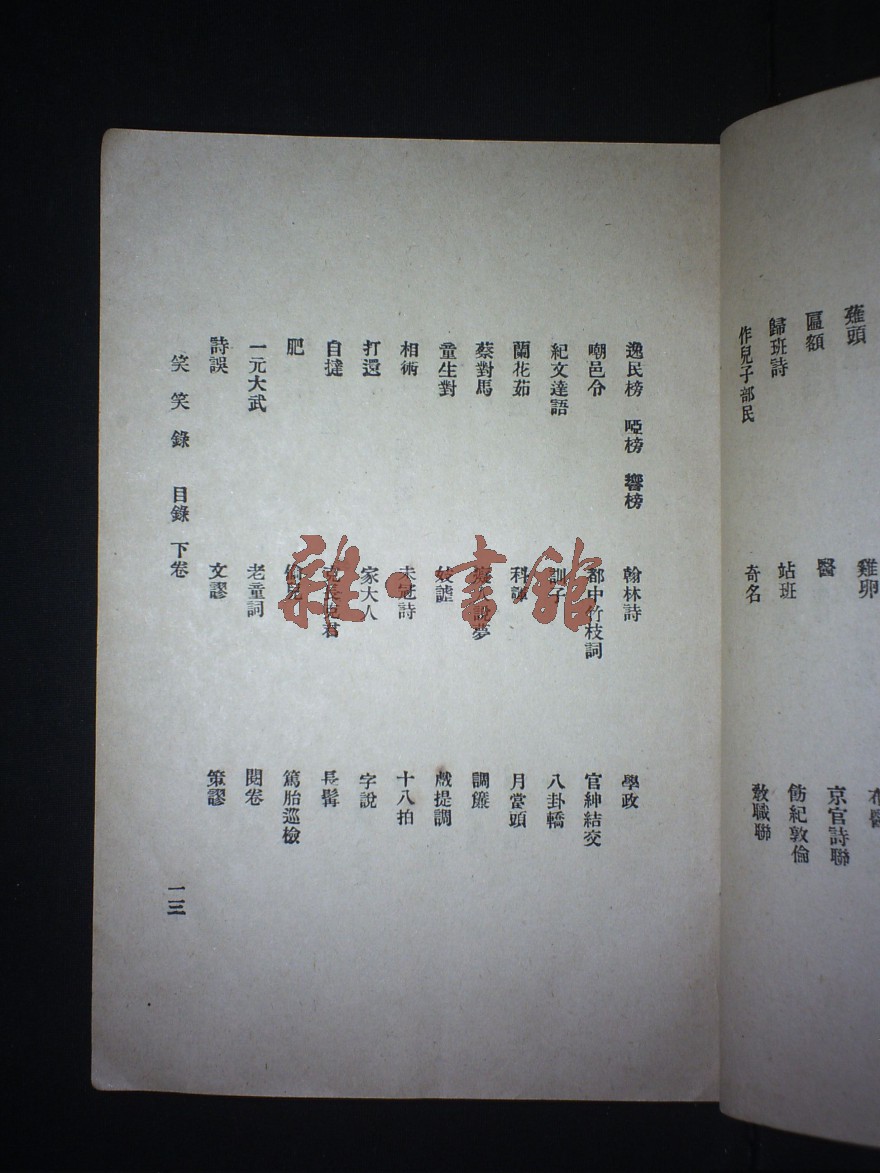 雞卵
匾額 醫 京官詩聯
歸班詩 站班 飭紀敦倫
作兒子部民 奇名 教職聯
逸民榜 啞榜 響榜 翰林詩 學政
嘲邑令 都中竹枝詞 官紳結交
紀文達語 訓子 八卦轎
蘭花茹 科諢 月當頭
蔡對馬 癡人說夢 調簾
童生對 妓謔 戲提調
相術 未冠詩 十八拍
打還 家大人 字說
自撻 克長克君 長髯
肥 偷兒 篤胎巡檢
一元大武 老童詞 閱卷
詩誤 文謬 策謬
笑笑錄 目錄 下卷 一三
雜·書館